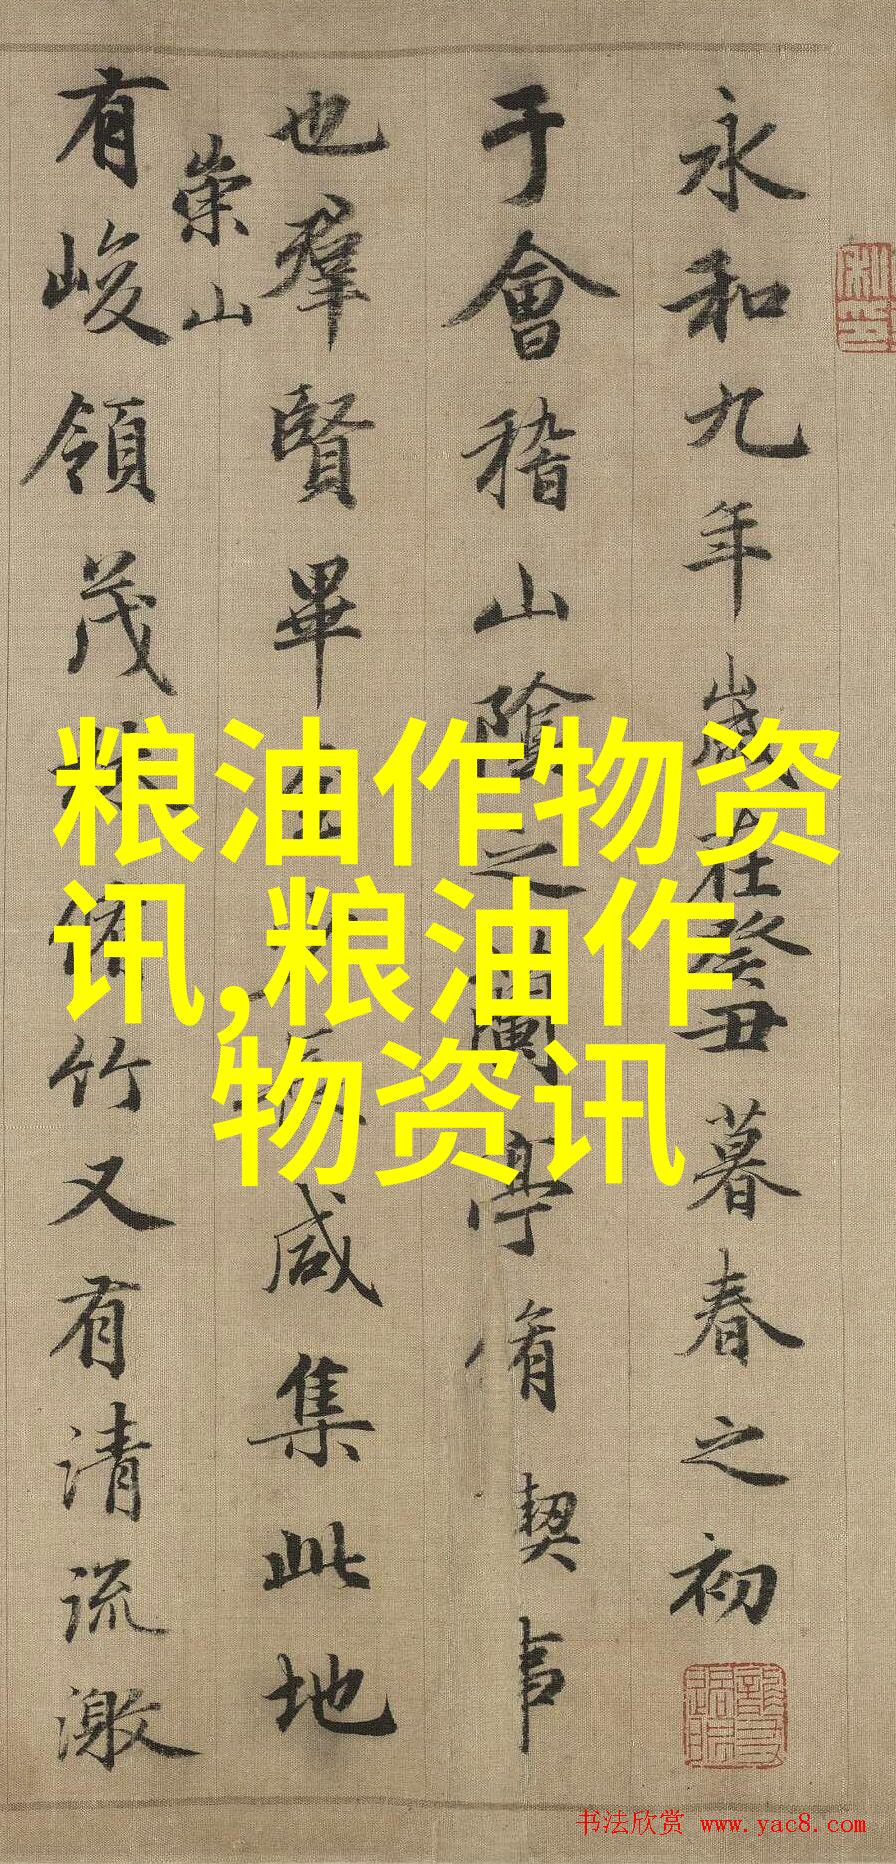 永和九年歲在癸丑暮春之初
于會稽山陰之蘭亭脩契事
也羣賢畢至少長咸集此地
崇山
有峻領茂林脩竹又有清流激
粮油作物资
讯,粮油作
物资讯
书法欣赏 www.yac8.com